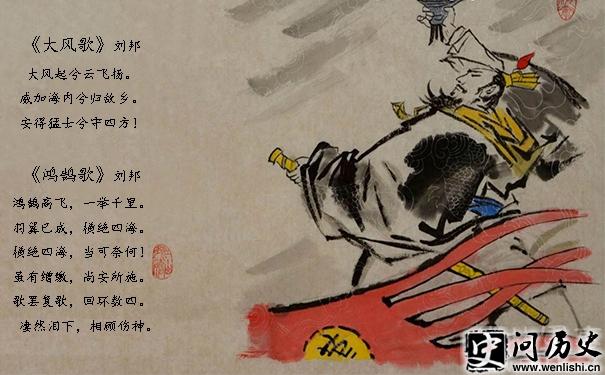 《大风歌》刘邦
大风起兮云飞扬。
威加海内兮归故乡。
安得猛士兮守四方！
《鸿鹄歌》刘邦
鸿鹄高飞，一举千里。
羽翼已成，横绝四海。
横绝四海，当可奈何！
虽有矰缴，尚安所施。
歌罢复歌，回环数四。
凄然泪下，相顾伤神。
问历史
www.wenlishi.cn